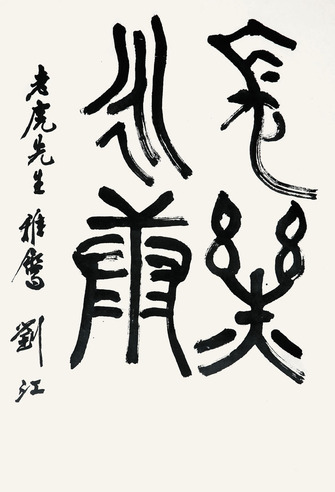 長樂
永康
老虎先生雅鑒 劉江